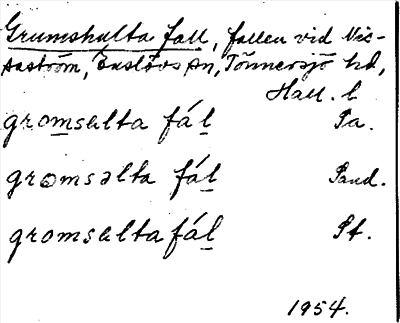 Grumshulta fall, fallen vid Nis-
saström, Enslövs sn, Tönnersjö hd,
Hall. l
gromsalta fál Pa.
gromsəlta fál Sand.
gromsalta fál St.
1954.